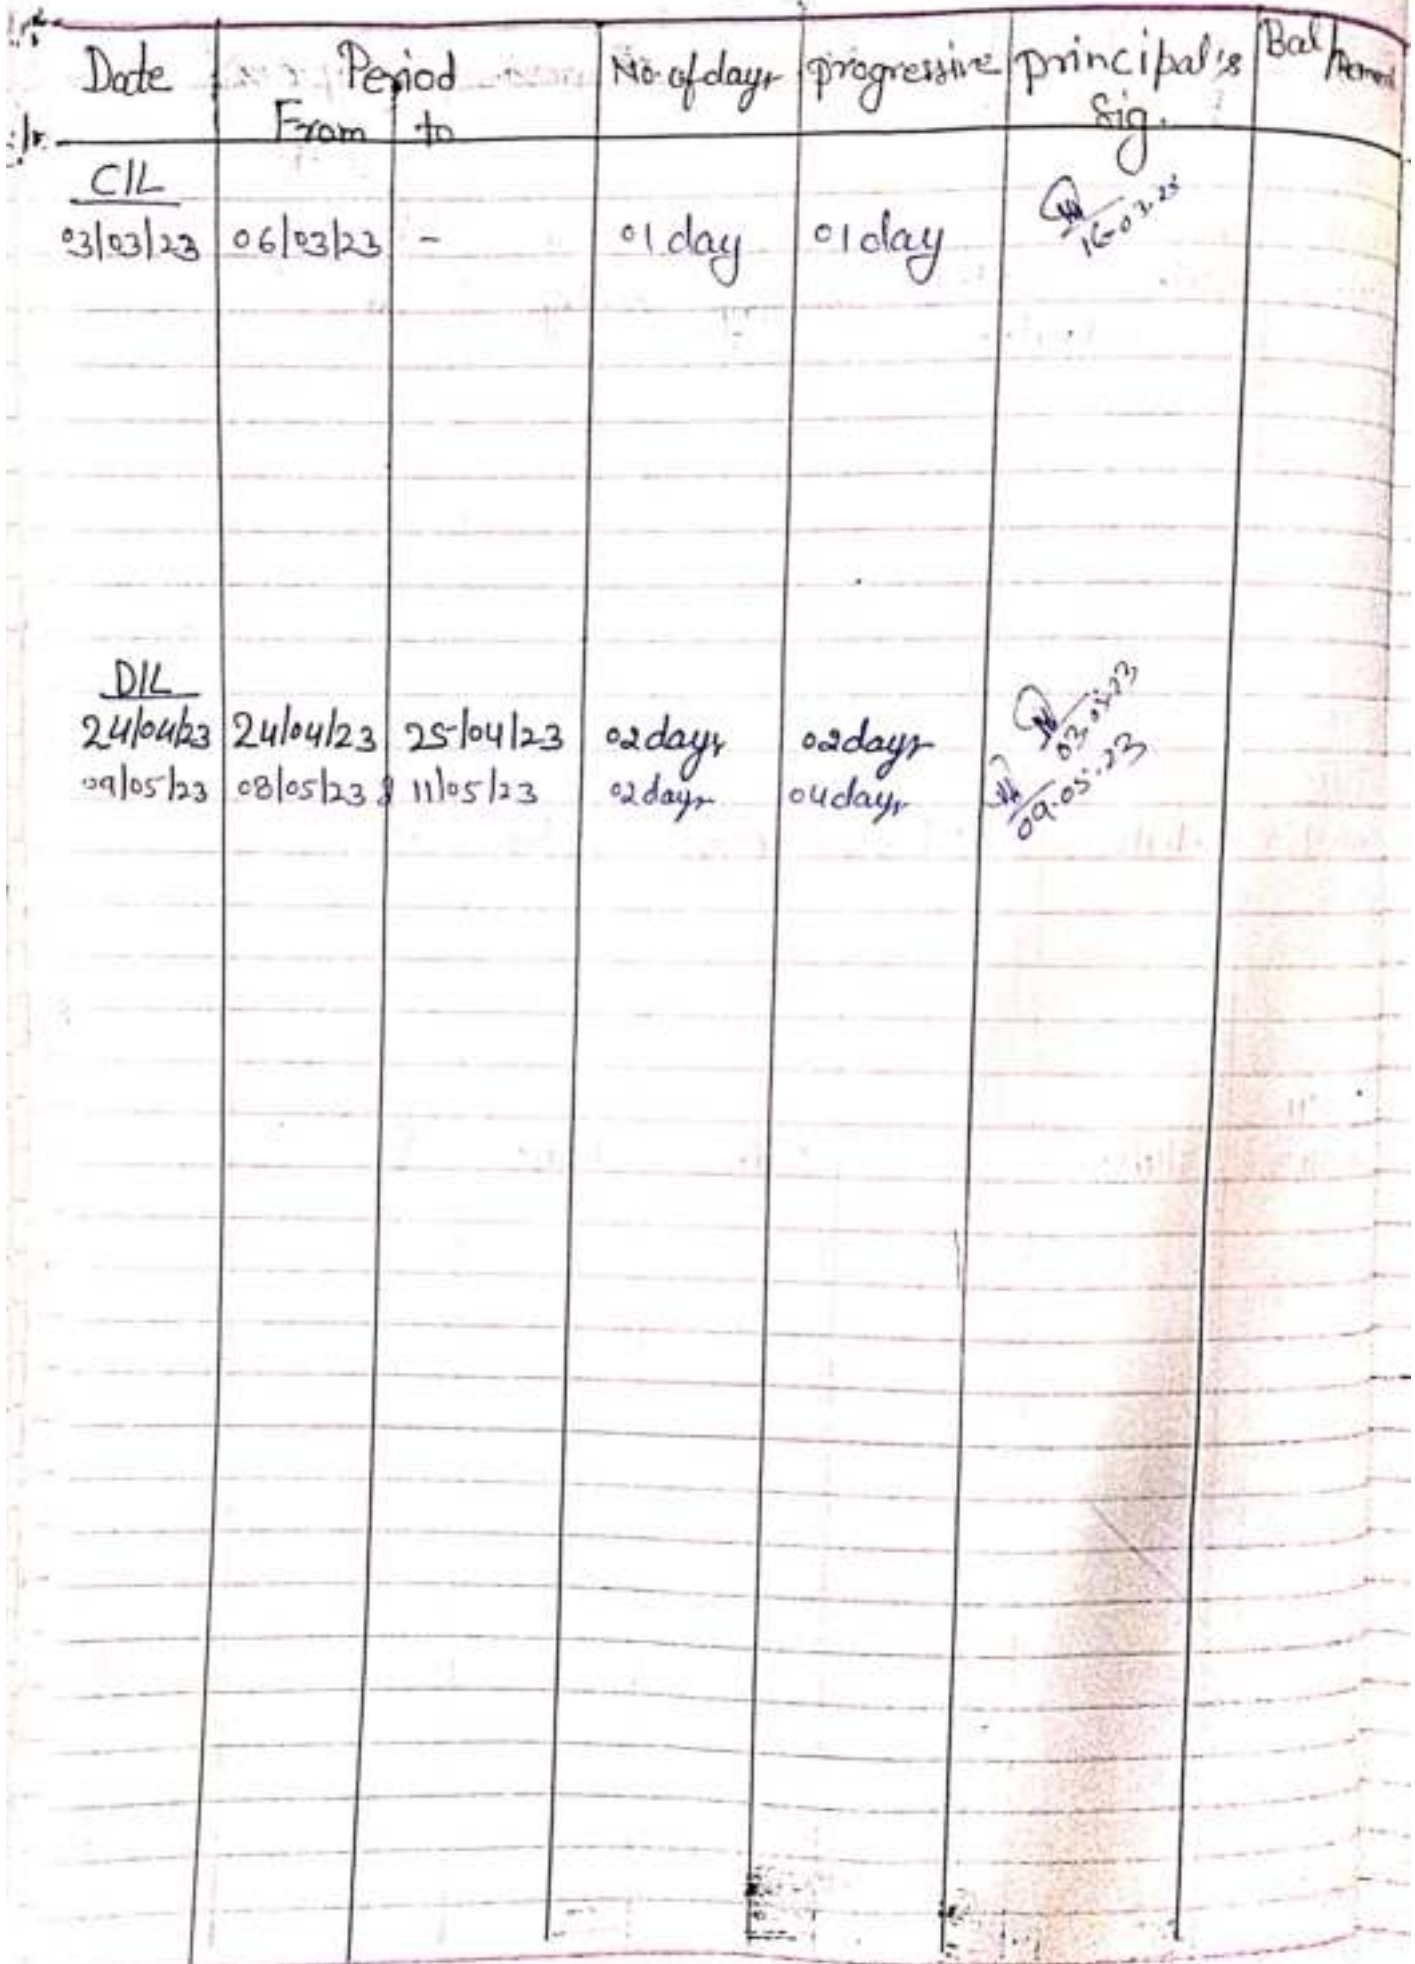 Date Period No. of days progressive principal's Bal/
From to sig.
C/L
03/03/23 06/03/23 - 01 day 01 day 16-03-23
D/L
24/04/23 24/04/23 25/04/23 02 days 02 days 03.05.23
09/05/23 08/05/23 & 11/05/23 02 days 04 days 09.05.23